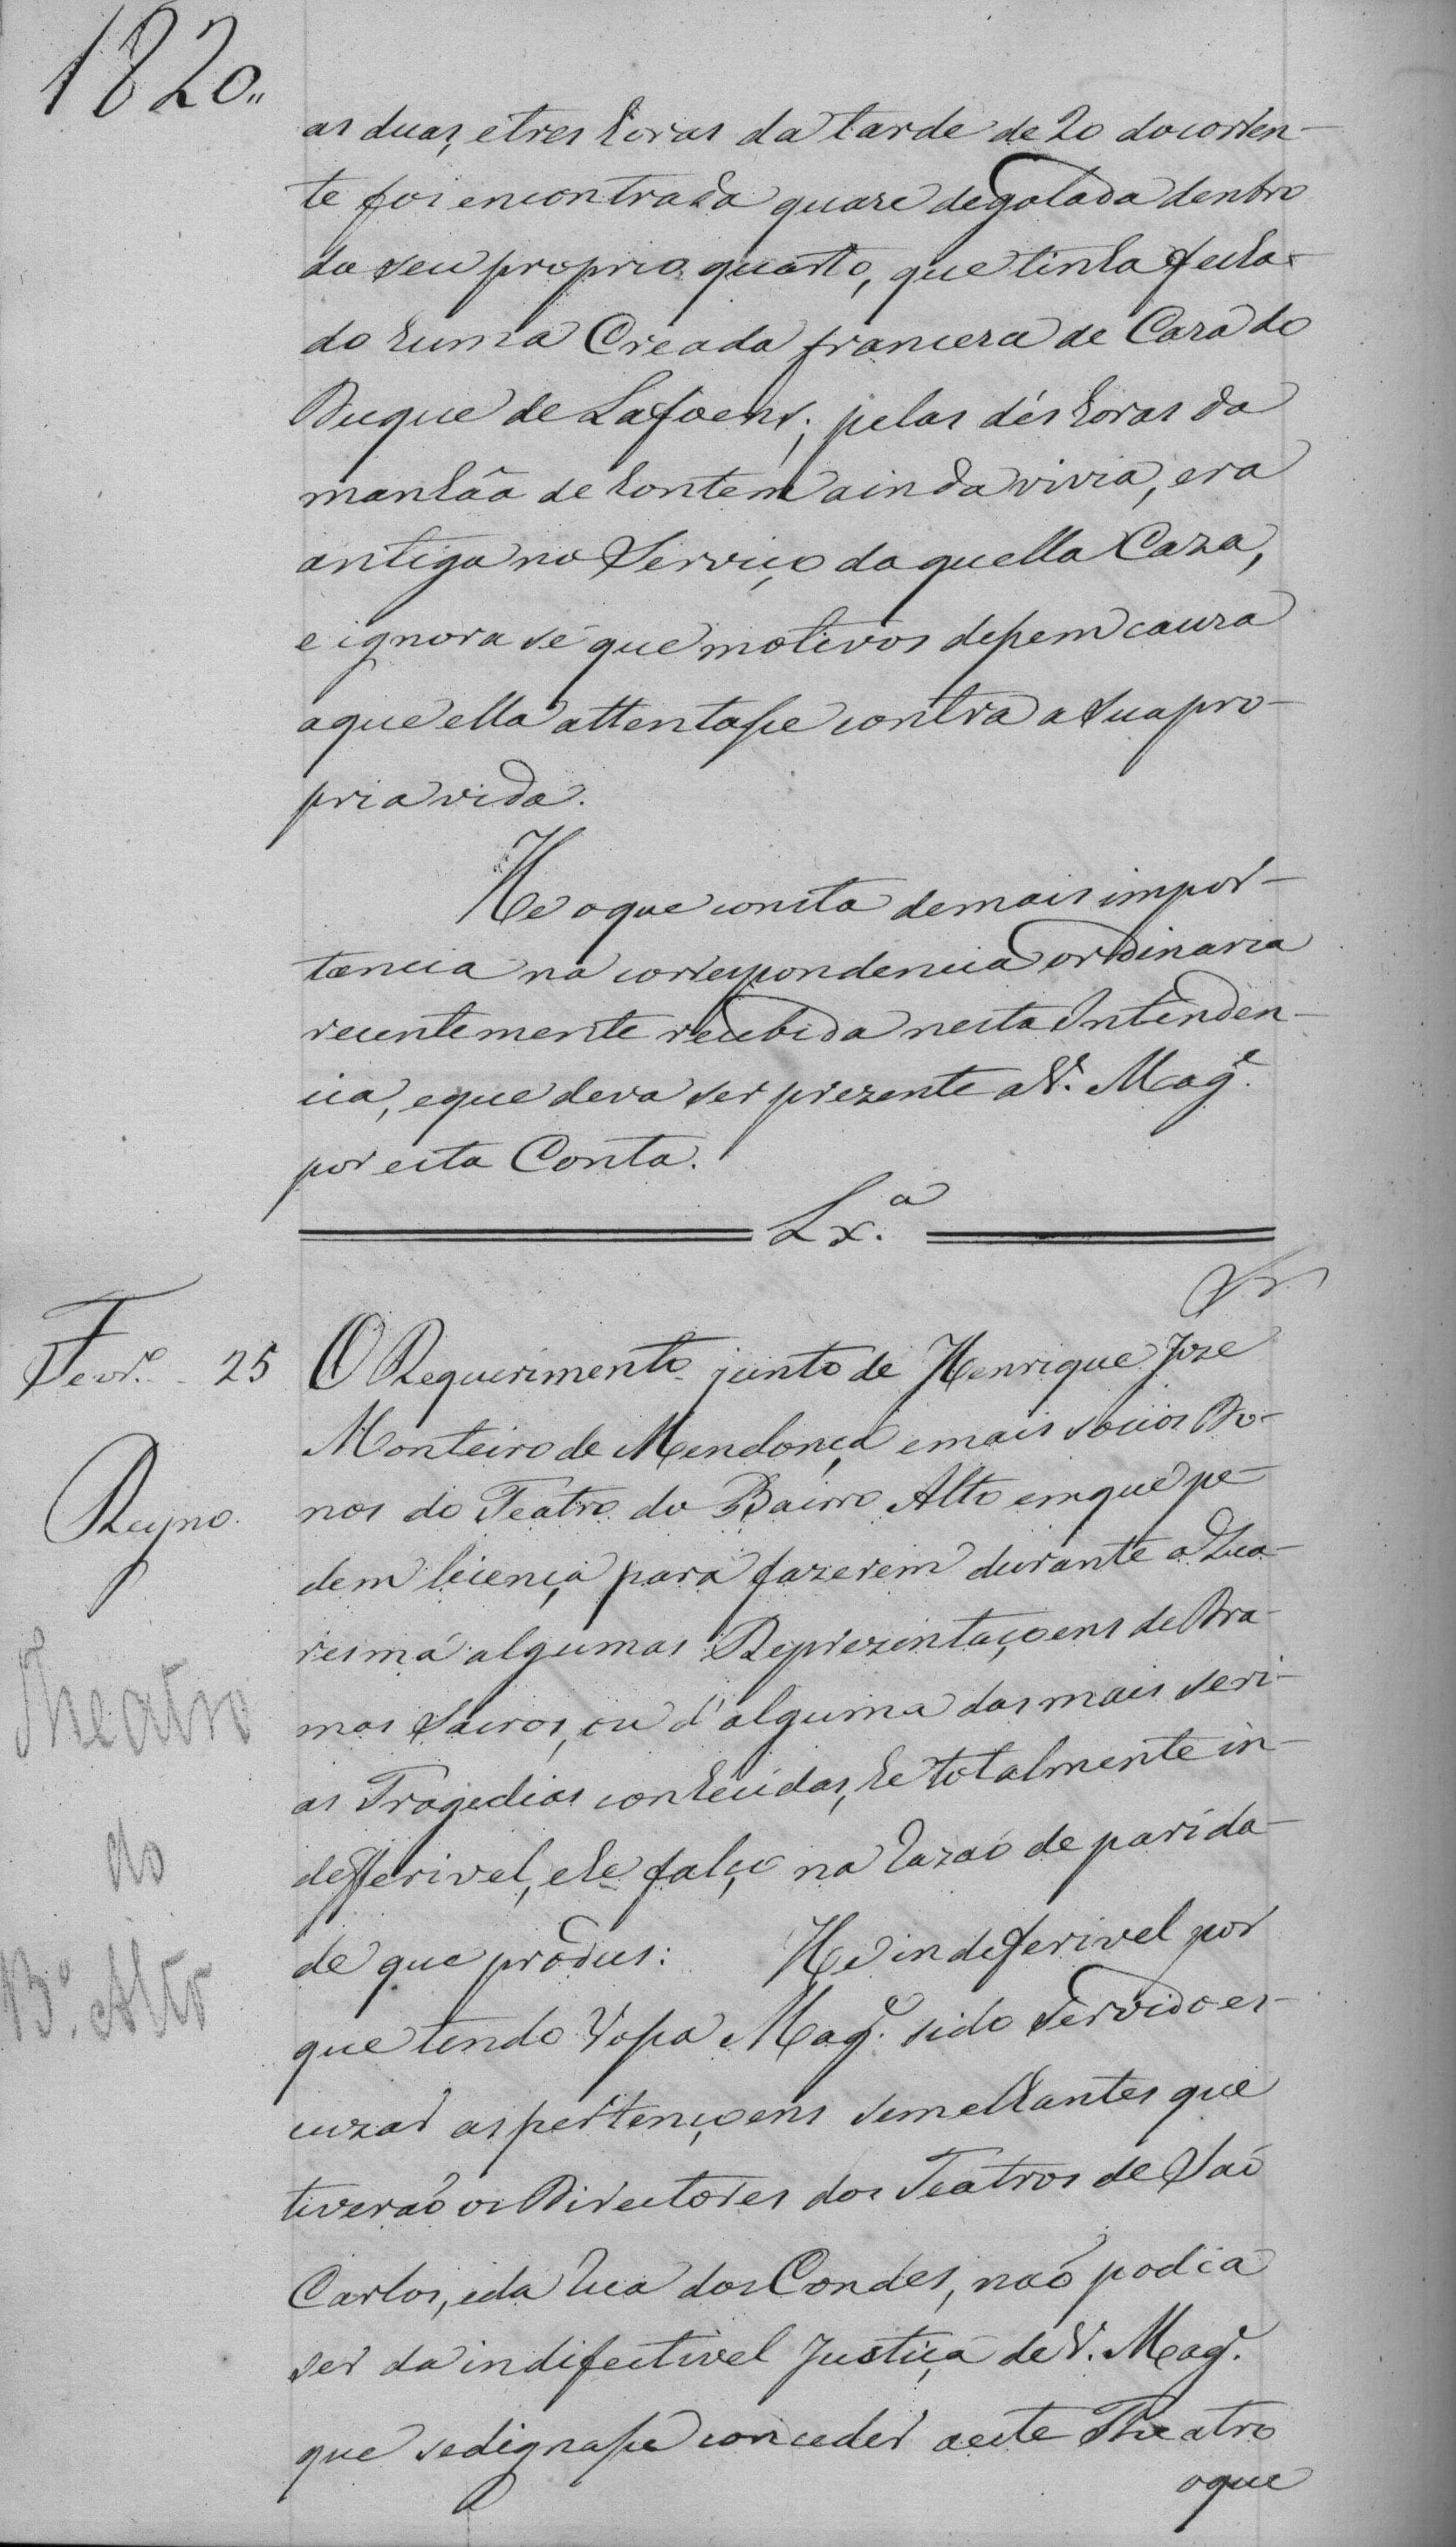 1820,,
as duas, e tres horas da tarde de 20 do corren-
te foi encontrada quaze degolada dentro
do seu proprio quarto, que tinha fecha-
do huma Creada franceza de Caza do
Duque de Lafoens; pelas dés horas da
manhãa de hontem ainda vivia, era
antiga no Serviço daquella Caza,
e ignora se que motivos dessem cauza
a que ella attentasse contra a sua pro-
pria vida.
He o que consta de mais impor-
tancia na correspondencia ordinaria
recentemente recebida nesta Intenden-
cia, e que deva ser prezente a V. Mag.e
por esta Conta.
Lx.a
Fevr.o 25
O Requerimento junto de Henrique Joze
Monteiro de Mendonça e mais socios Do-
Reyno
nos do Teatro do Bairro Alto em que pe-
dem licença para fazerem durante a Qua-
resma algumas Reprezentaçoens de Dra-
Theatro
mas Sacros, ou d'alguma das mais seri-
as Tragedias conhecidas, he totalmente in-
do
defferivel, e he falço na razaõ de parida-
B.o Alto
de que produs: He indeferivel por
que tendo Vossa Mag.e sido servido es-
cuzar as pertençoens semelhantes que
tiveraõ os Directores dos Teatros de Saõ
Carlos, e da Rua dos Condes, naõ podia
ser da indifectivel Justiça de V. Mag.e
que se dignasse conceder a este Theatro
o que